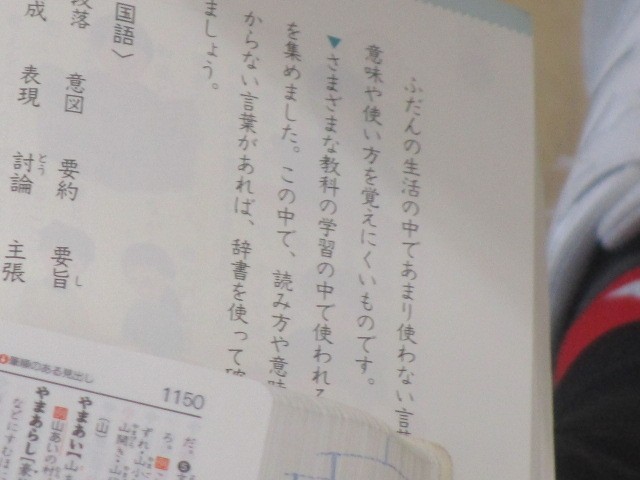 ふだんの生活の中であまり使わない言
意味や使い方を覚えにくいものです。
▼さまざまな教科の学習の中で使われ
を集めました。この中で、読み方や意味
からない言葉があれば、辞書を使って
ましょう。
国語〉
段落 意図 要約 要旨
成 表現 討論 主張
1150
筆順のある見出し
やまあい【山
(山)
山あいの村
やまあらし
などにすむ